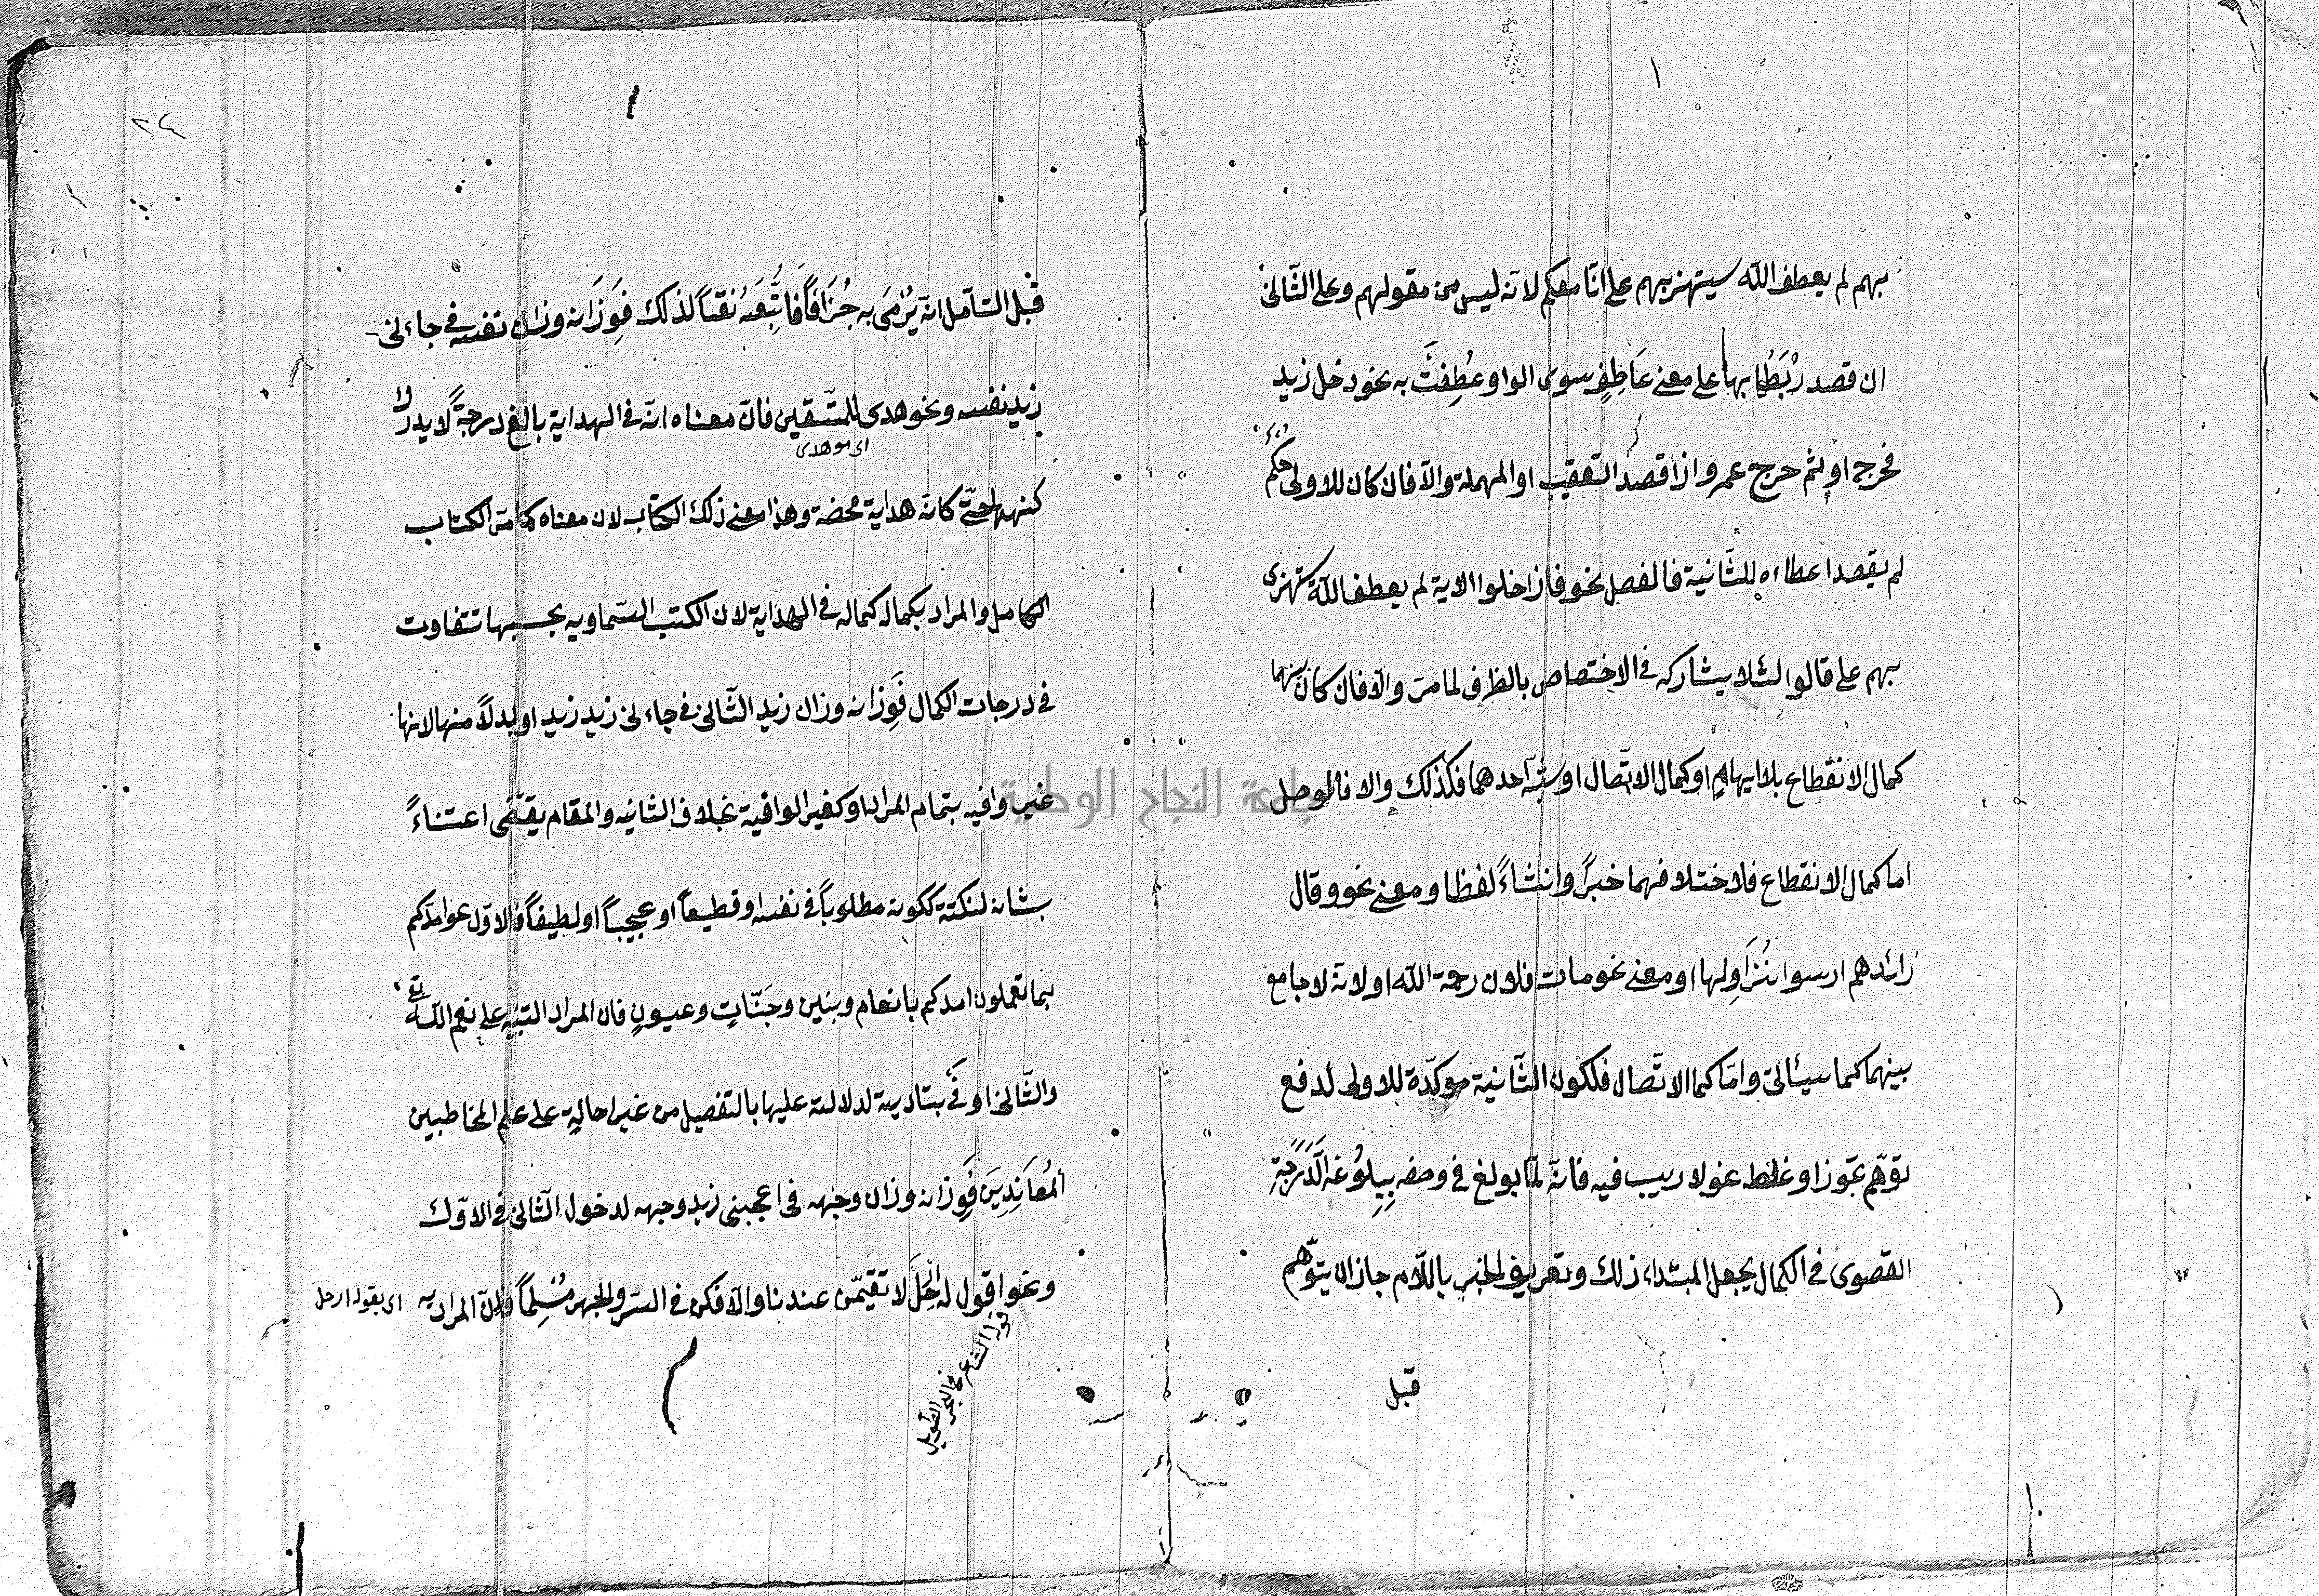 بهم لم يعطف الله سيتهزيبهم على انا معكم لانه ليس من مقولهم وعلى الثّانى
ان قصد رُبَطُها بها على معنى عَاطِفٍ سوى الواو عُطِفَتَ به نحو دخل زيد
فخرج او ثم خرج عمرو اذا قصد التعقيب او المهملة والّا فان كان للاولى حكم
لم يقصد اعطاءه للثّانية فالفصل نحو فاذا خلوا الاية لم يعطف اللّه يستهزئ
بهم على قالوا لئلا يشاركه فى الاختصاص بالظرف لما مرّ والّا فان كان بينهما
كمال الانقطاع بلا ايهام او كمال الاتّصال او شبه احدهما فكذلك والا فالوصل
اما كمال الانقطاع فلاختلافهما خبراً وانشاءً لفظا ومعنى نحو وقال
رائدهم ارسوا نُزَاوِلها او معنى نحو مات فلان رحمة الله او لانّه لا جامع
بينهما كما سيئاتى وامّا كمال الاتّصال فلكون الثّانية موكدّة للاولى لدفع
توّهم تجوّز او غلط نحو لا ريب فيه فانّه لمّا بولغ فى وصفه بِبِلُوُغه الَدَّرَجةِ
القصوى فى الكمال بجعل المبتداء ذلك وتعريف الخبر باللّام جاز ان يتوّهم
قبل
٢٤
قبل التأمل انّه يُرْمَى به جُزَافاً فَاتُّبَعَهُ نفياً لذلك فَوِزَانه وزان نفسه فى جاءنى
زيد نفسه ونحو هدى للمتّقين فانّ معناه انّه فى الهداية بالغ درجةً لا يدرك
اى هو هدى
كنهها حتّى كانّه هداية محضة وهذا معنى ذلك الكتاب لان معناه كما مرّ الكتاب
الكامل والمراد بكماله كماله فى الهداية لان الكتب السّماويه بحسبها تتفاوت
فى درجات الكمال فَوِزانه وزان زيد الثّانى فى جاءنى زيد زيد او بدلاً منها لانها
غير وافيه بتمام المراد او كغير الوافية بخلاف الثانيه والمقام يقتضى اعتناءً
بشانه لنكتة ككونه مطلوباً فى نفسه او قطيعاً او عجيباً او لطيفاً فالاوّل نحو امدّكم
بما تعملون امدكم بانعام وبنين وجَنّاتٍ وعيونٍ فان المراد التنبيه على نعم اللّه تع
والثّانى اوفَى بتاديته لدلالته عليها بالتفصيل من غير احالةٍ على علم المخاطبين
اَلمُعَانِدِينَ فَوِزانه وزان وجهه فى اعجبنى زيد وجهه لدخول الثّانى فى الاوّل
ونحو اقول له ارْحَلْ لا تقيمّن عندنا والّا فكن فى السّر والجهر مُسْلِماً فانّ المراد به
اى بقوله ارحل
قول الشاعر فى البحر الطويل
جامعة النجاح الوطنية